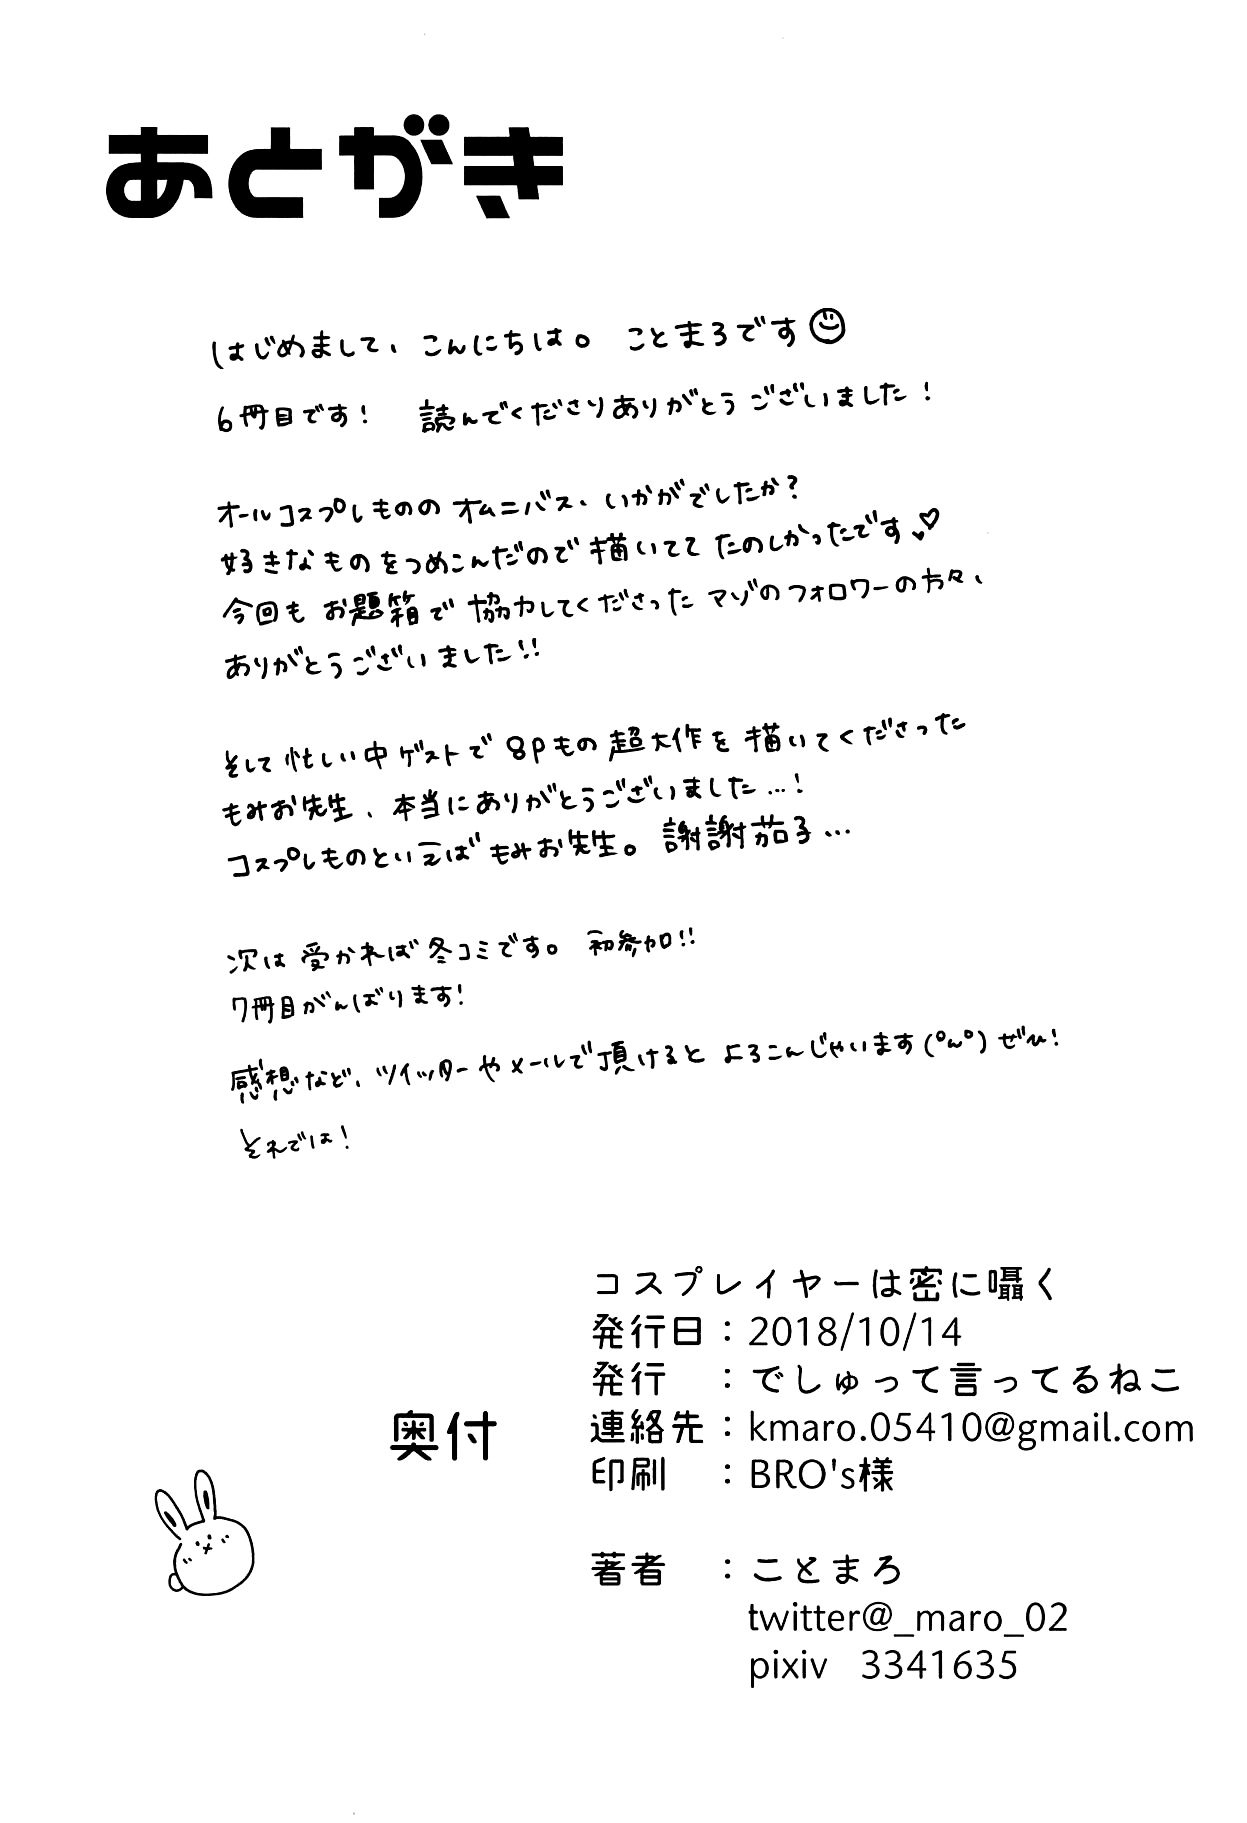 あとがき
はじめまして、こんにちは。 ことまろです
6冊目です! 読んでくださりありがとうございました!
オールコスプレもののオムニバス、いかがでしたか?
好きなものをつめこんだので描いてて たのしかったです♡
今回も お題箱で 協力してくださった マゾのフォロワーの方々、
ありがとうございました!!
そして忙しい中ゲストで 8pもの 超大作を 描いてくださった
もみお先生、本当にありがとうございました…!
コスプレものといえば もみお先生。謝謝茄子…
次は 受かれば冬コミです。 初参加!!
7冊目がんばります!
感想など、ツイッターやメールで頂けると よろこんじゃいます(°ω°) ぜひ!
それでは!
コスプレイヤーは密に囁く
発行日:2018/10/14
発行 :でしゅって言ってるねこ
奥付
連絡先:kmaro.05410@gmail.com
印刷 :BRO's様
著者 :ことまろ
twitter@_maro_02
pixiv 3341635